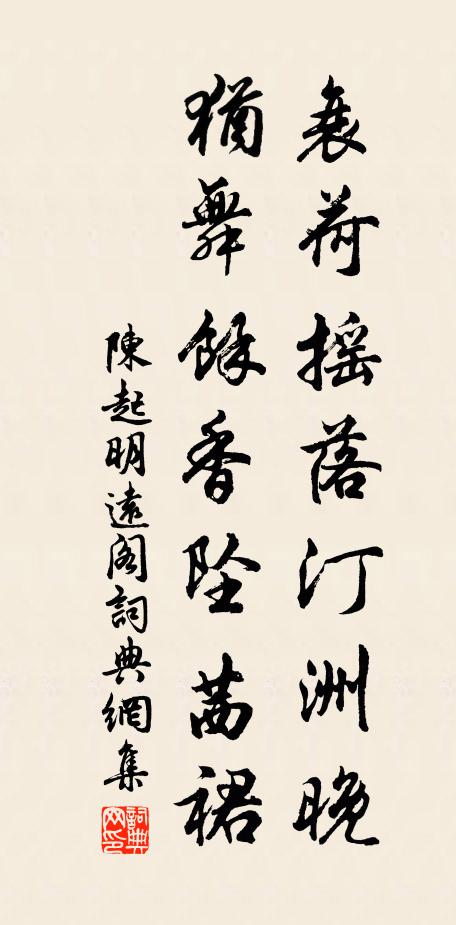 衰荷摇落汀洲晚
猶舞餘香墜茜裙
陳起明遠閣詞典網集
詞典網印